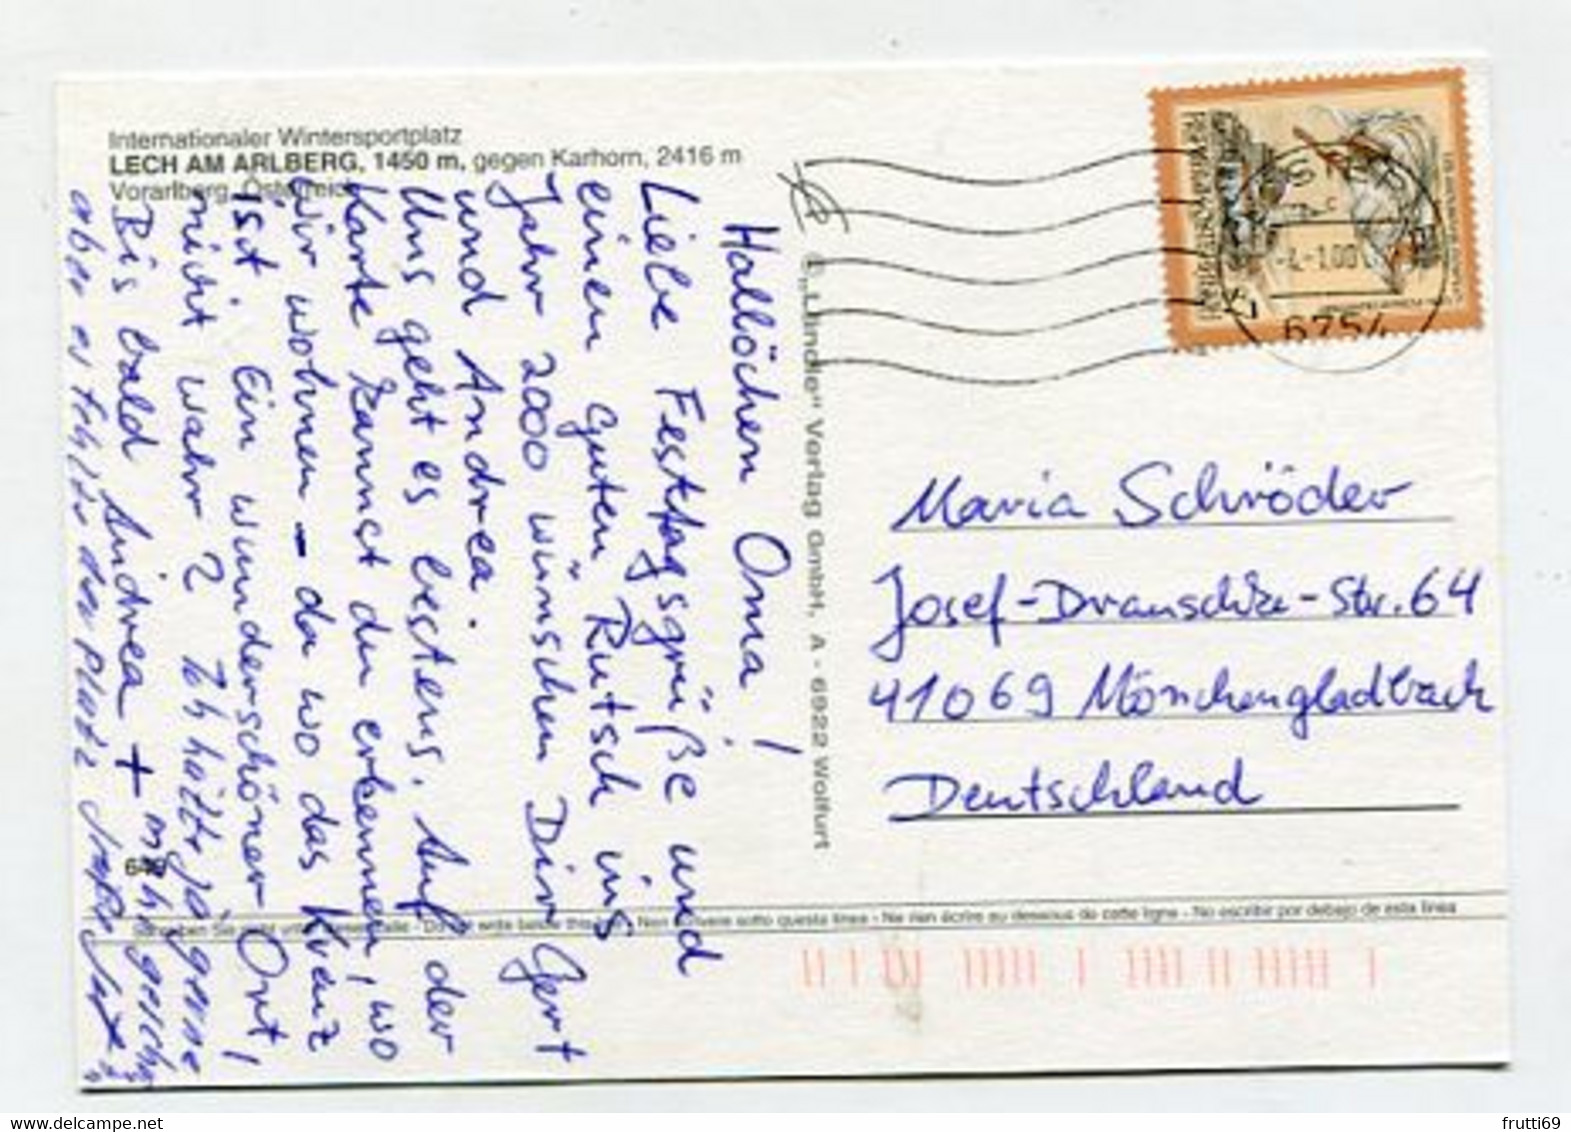 Internationaler Wintersportplatz
LECH AM ARLBERG, 1450 m, gegen Karhorn, 2416 m
Vorarlberg, Österreich
Hallöchen Oma!
Liebe Festtagsgrüße und
einen "Guten Rutsch ins
Jahr 2000 wünschen Dir Gert
und Andrea.
Uns geht es bestens. Auf der
Karte kannst du erkennen, wo
wir wohnen - da wo das Kreuz
ist. Ein wunderschöner Ort,
nicht wahr? Ich hätte ja gerne
Bis bald Andrea + m h
aber es fehlte der Platz
© "Lündle" Verlag GmbH, A - 6922 Wolfurt
-4.-1.00
6754
Maria Schröder
Josef-Drauschke-Str. 64
41069 Mönchengladbach
Deutschland
Schreiben Sie nicht unter dieser Zeile - Do not write below this line - Non scrivere sotto questa linea - Ne rien écrire au dessous de cette ligne - No escribir por debajo de esta linea
frutti69